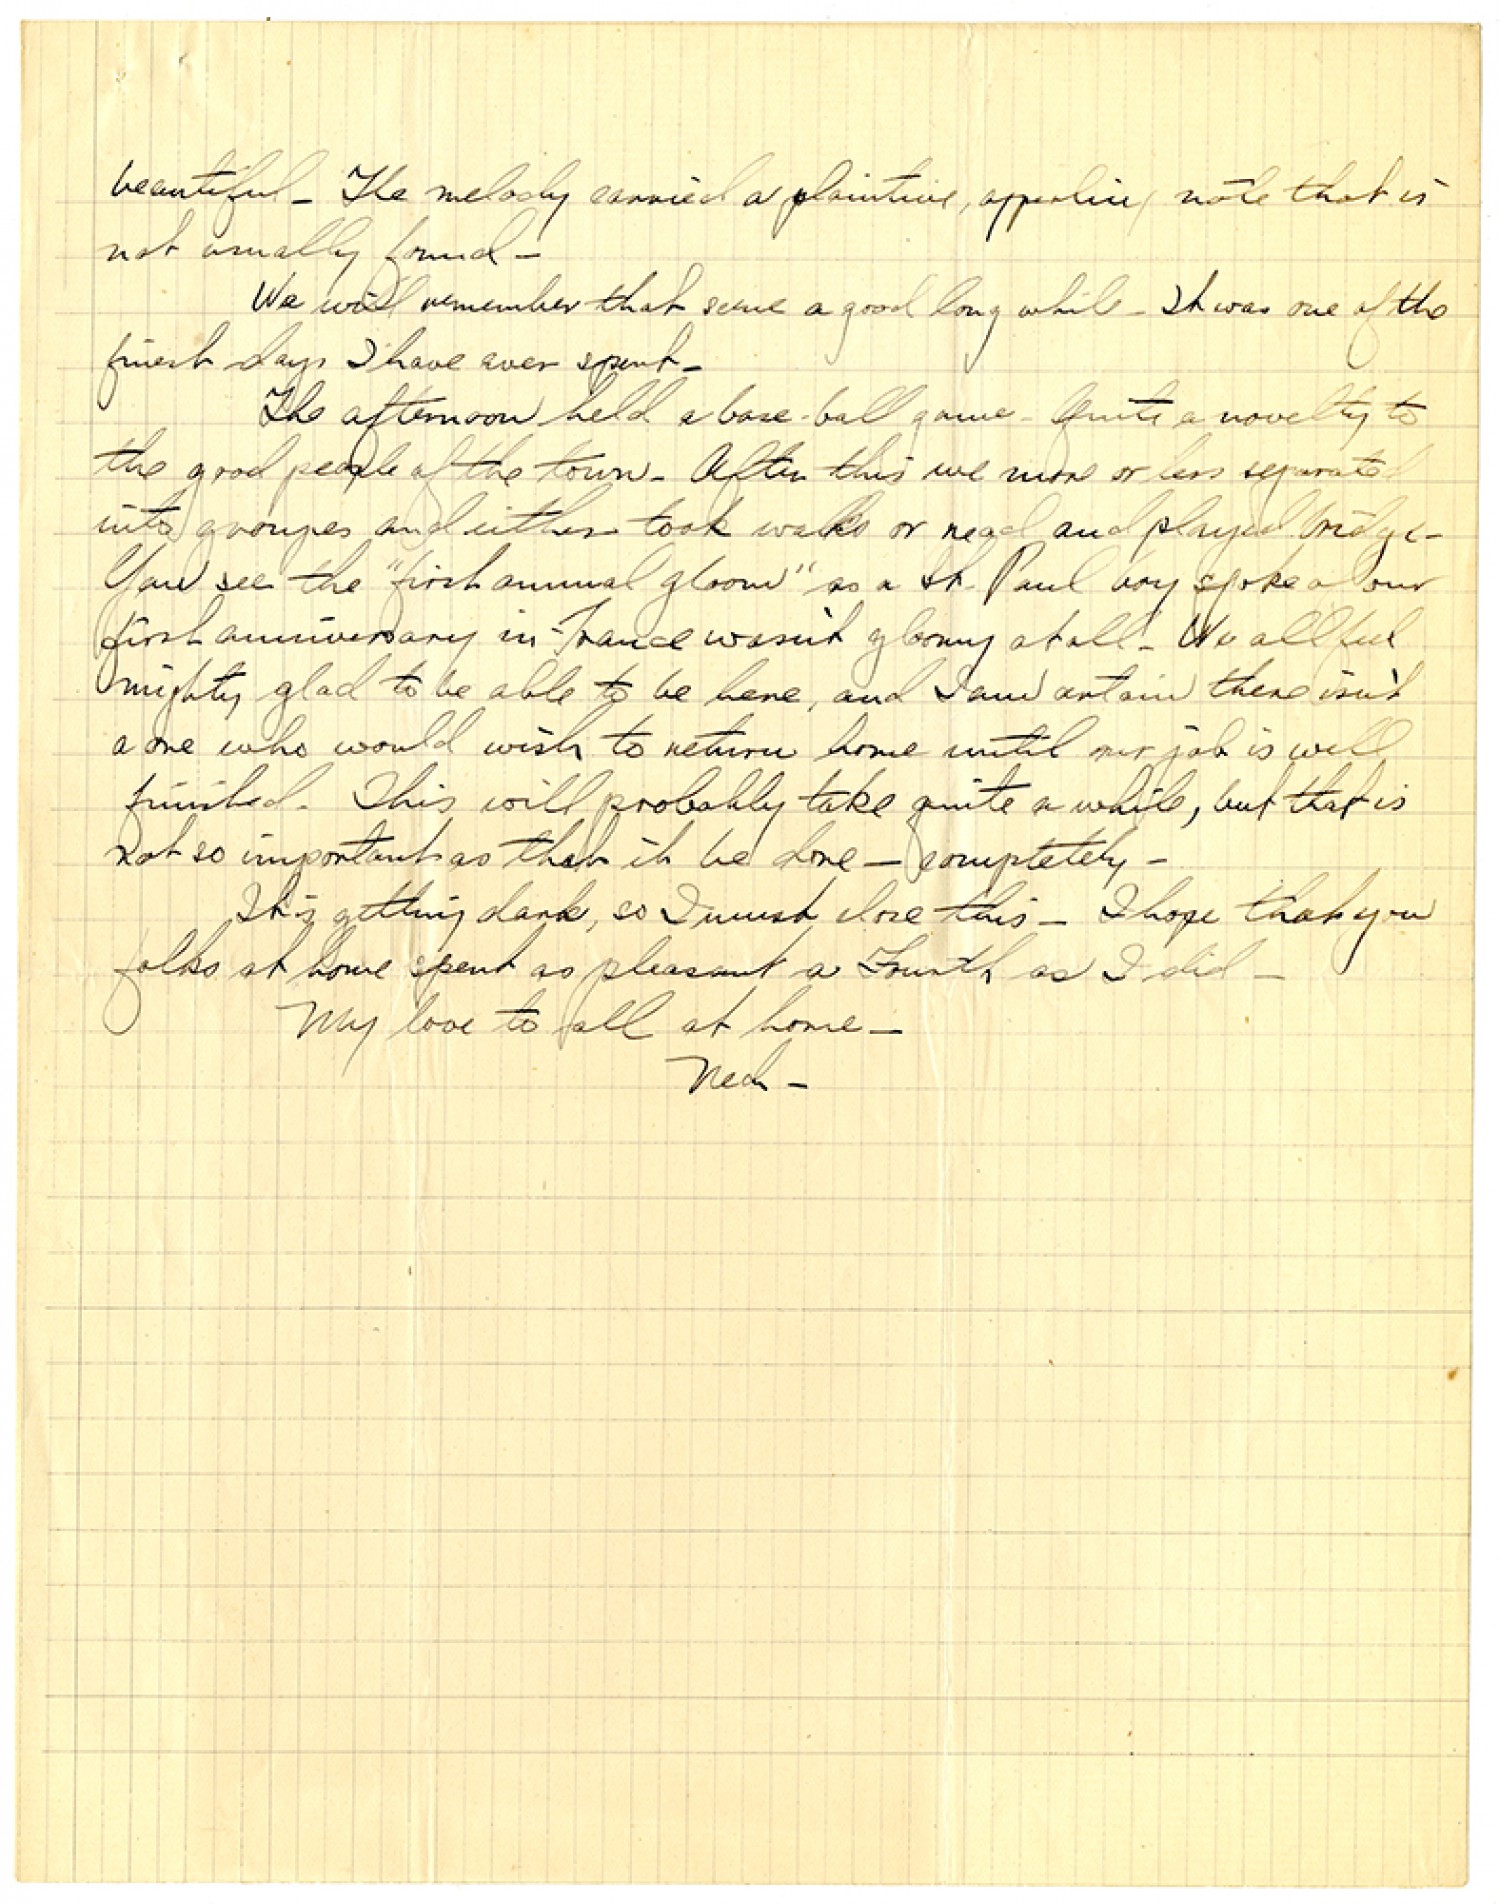 beautiful – The melody carried a plaintive, appealing note that is
not usually found –
We will remember that scene a good long while – It was one of the
finest days I have ever spent –
The afternoon held a base-ball game – Quite a novelty to
the good people of the town – After this we more or less separated
into groupes and either took walks or read and played bridge –
You see the "first annual gloom" as a St. Paul boy spoke of our
first anniversary in France wasn't gloomy at all – We all feel
mighty glad to be able to be here, and I am certain there isn't
a one who would wish to return home until our job is well
finished. This will probably take quite a while, but that is
not so important as that it be done – completely –
It is getting dark, so I must close this – I hope that you
folks at home spent as pleasant a Fourth as I did –
My love to all at home –
Ned –